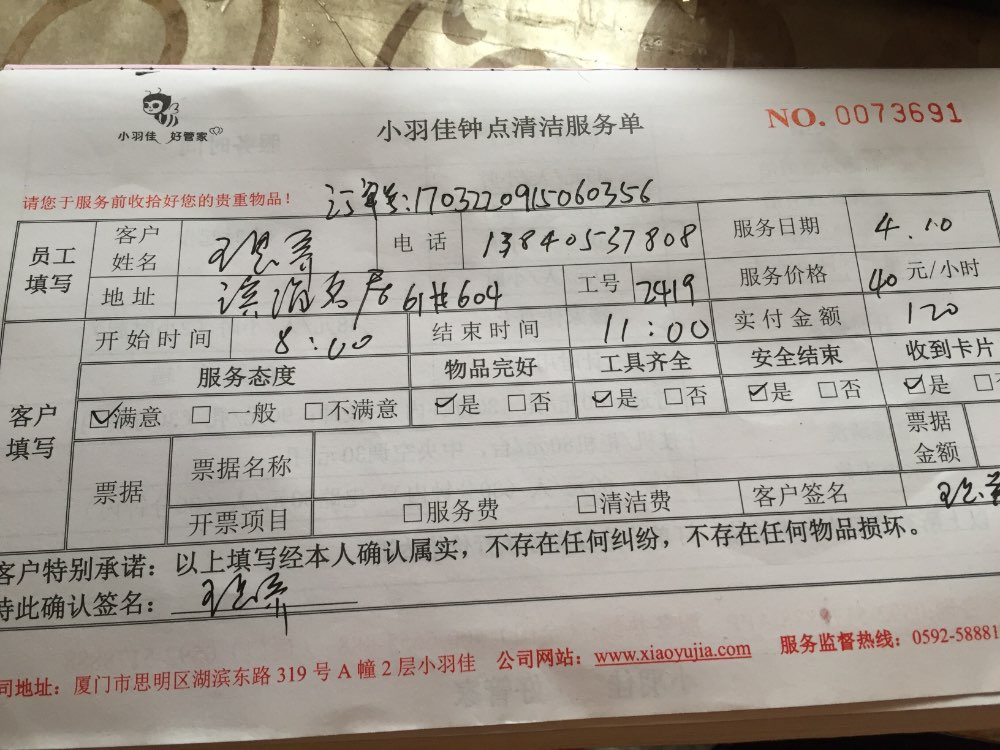 小羽佳 好管家
小羽佳钟点清洁服务单
NO. 0073691
请您于服务前收拾好您的贵重物品！
订单号:1703220915060356
员工填写 客户姓名 电话 13840537808 服务日期 4.10
地址 61#604 工号 2419 服务价格 40 元/小时
客户填写 开始时间 8:00 结束时间 11:00 实付金额 120
服务态度 物品完好 工具齐全 安全结束 收到卡片
☑满意 □ 一般 □不满意 ☑是 □否 ☑是 □否 ☑是 □否 ☑是
票据 票据名称 票据金额
开票项目 □服务费 □清洁费 客户签名
客户特别承诺：以上填写经本人确认属实，不存在任何纠纷，不存在任何物品损坏。
特此确认签名：
司地址：厦门市思明区湖滨东路 319 号 A 幢 2 层小羽佳 公司网站：www.xiaoyujia.com 服务监督热线：0592-58881